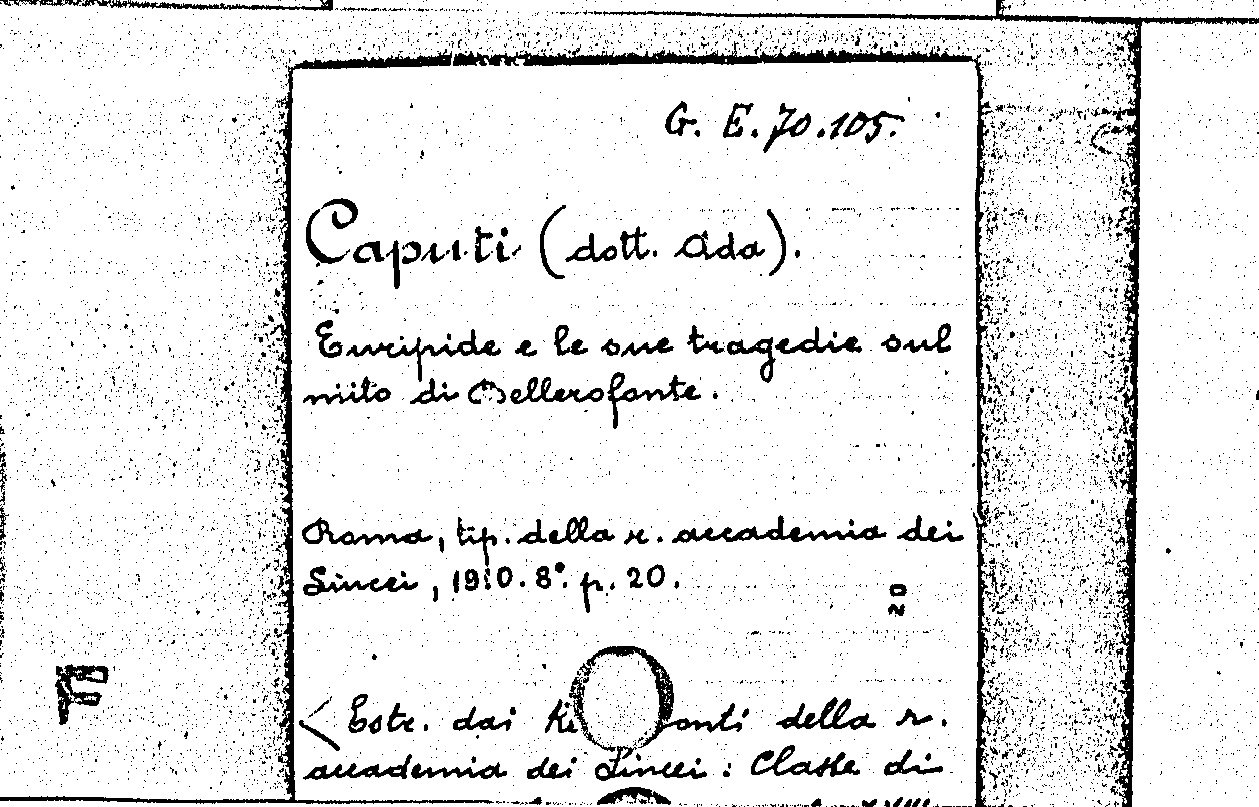 G. E. 70.105.
Caputi (dott. Ada).
Euripide e le sue tragedie sul
mito di Bellerofonte.
Roma, tip. della r. accademia dei
Lincei, 1910. 8°. p. 20.
20
F
< Estr. dai onti della r.
accademia dei Lincei: Classe di